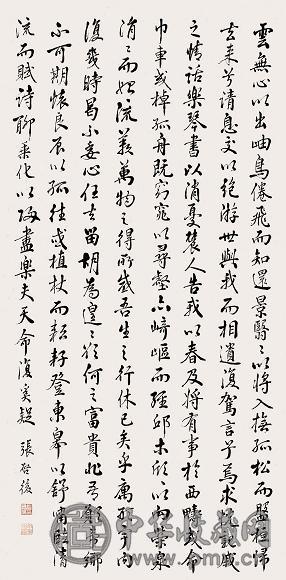 雲無心以出岫鳥倦飛而知還景翳〻以將入撫孤松而盤桓歸
去來兮請息交以絕游世與我而相遺復駕言兮焉求悅親戚
之情話樂琴書以消憂農人告我以春及將有事於西疇或命
巾車或棹孤舟既窈窕以尋壑亦崎嶇而經邱木欣〻以向榮泉
涓〻而始流羨萬物之得所感吾生之行休已矣乎寓形宇內
復幾時曷不委心任去留胡為遑〻欲何之富貴非吾願帝鄉
不可期懷良辰以孤往或植杖而耘耔登東皋以舒嘯臨清
流而賦詩聊乘化以歸盡樂夫天命復奚疑 張啟後
中华收藏网